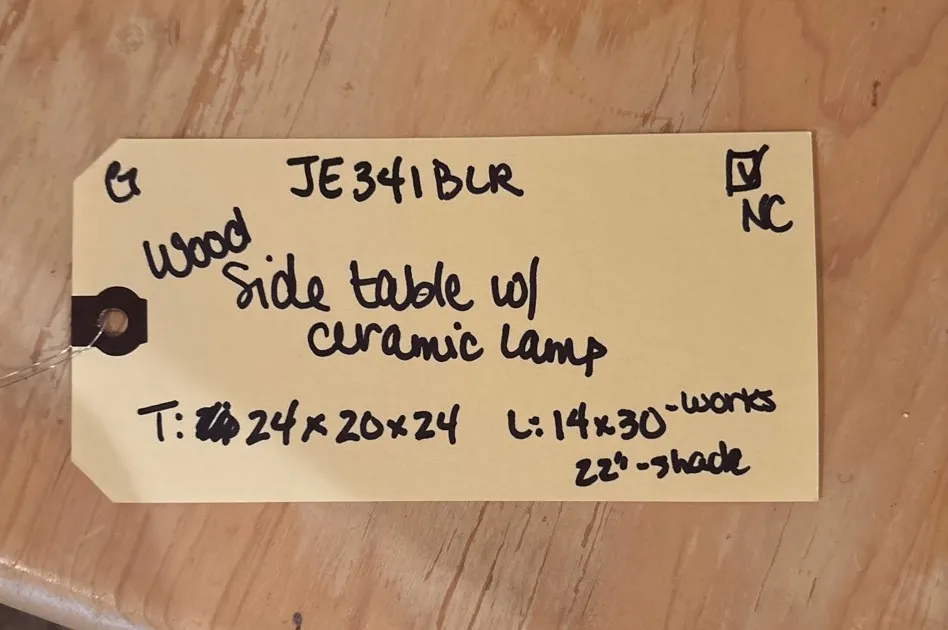 G JE341BLR
NC
Wood
Side table w/
ceramic lamp
T: 24 x 20 x 24 L: 14x30 -works
22" -shade